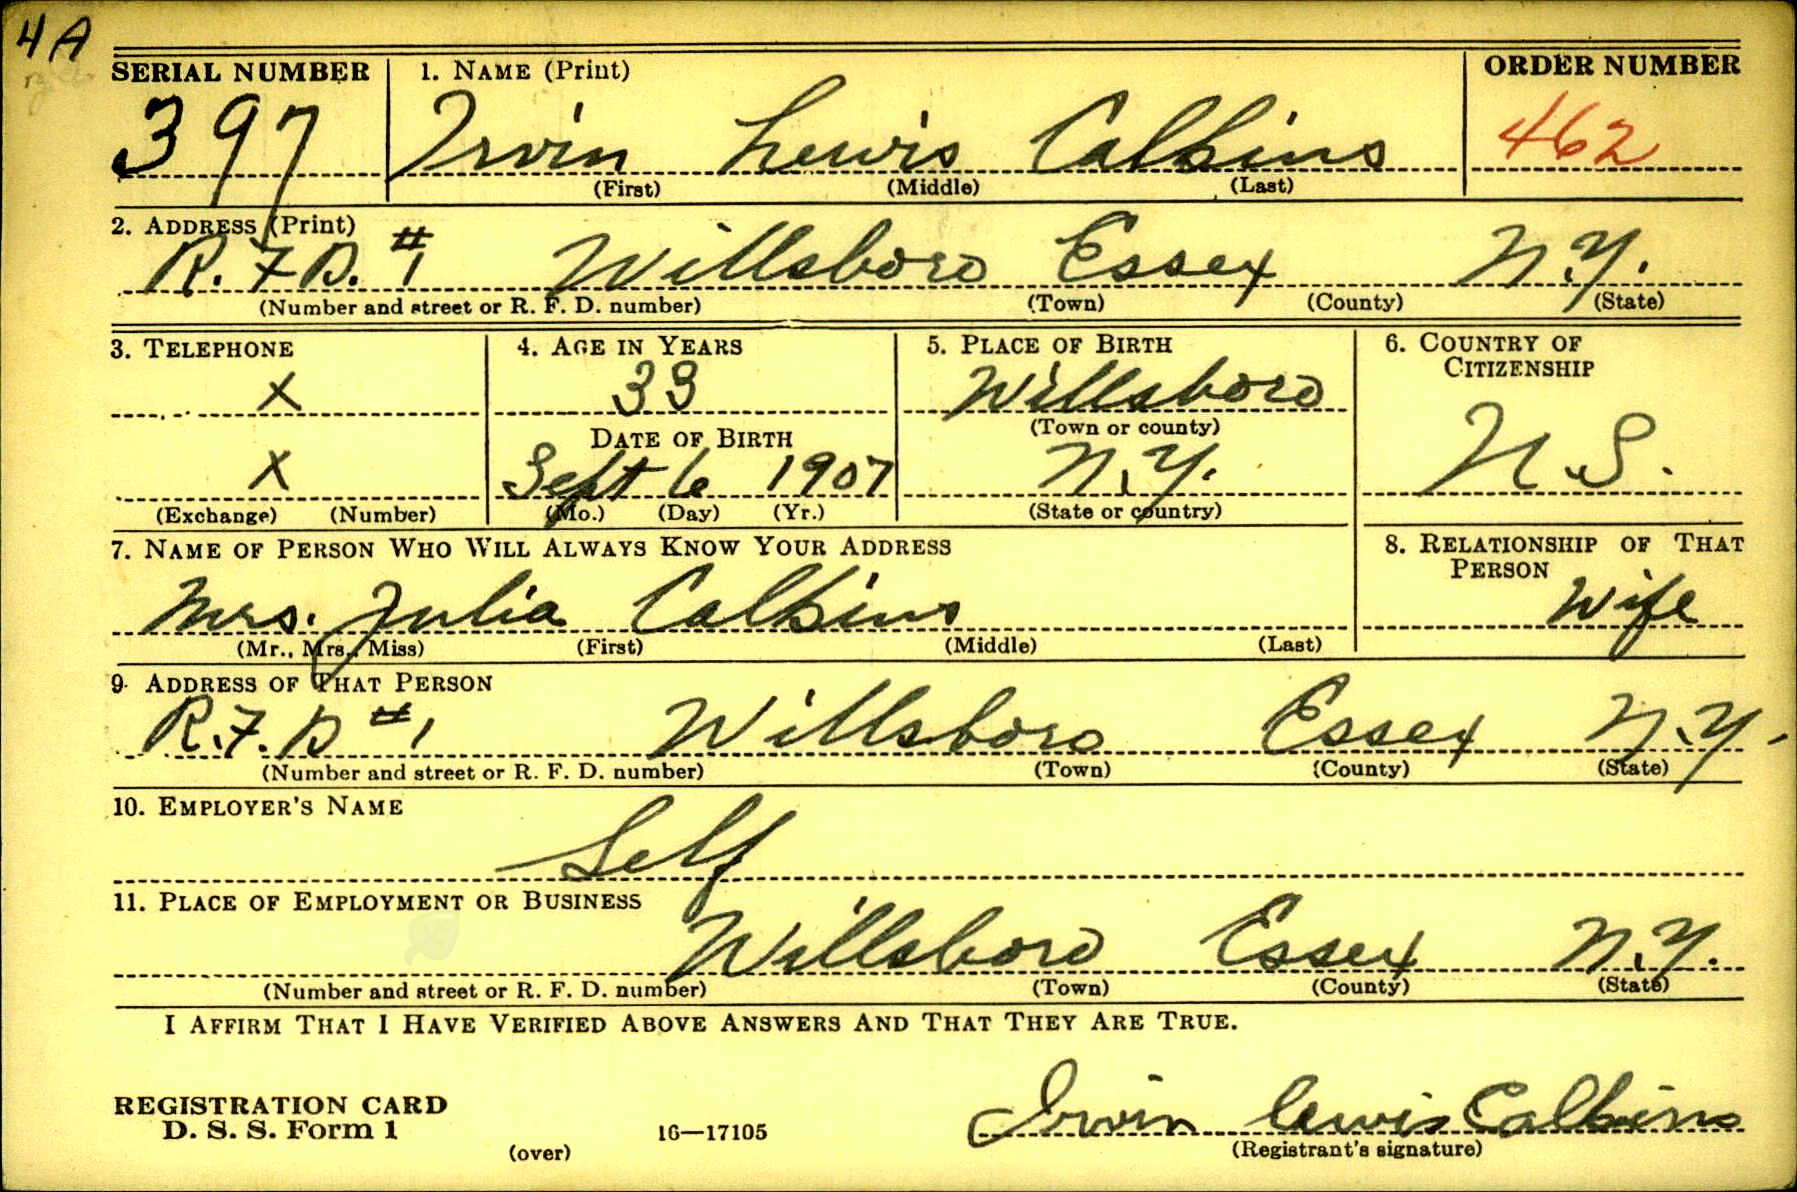 4A
SERIAL NUMBER 1. NAME (Print) ORDER NUMBER
397 Irvin Lewis Calkins 462
(First) (Middle) (Last)
2. ADDRESS (Print)
R.F.D. #1 Willsboro Essex N.Y.
(Number and street or R. F. D. number) (Town) (County) (State)
3. TELEPHONE 4. AGE IN YEARS 5. PLACE OF BIRTH 6. COUNTRY OF CITIZENSHIP
X 33 Willsboro
DATE OF BIRTH (Town or county)
X Sept 6 1907 N.Y. U.S.
(Exchange) (Number) (Mo.) (Day) (Yr.) (State or country)
7. NAME OF PERSON WHO WILL ALWAYS KNOW YOUR ADDRESS 8. RELATIONSHIP OF THAT PERSON
Mrs. Julia Calkins Wife
(Mr., Mrs., Miss) (First) (Middle) (Last)
9. ADDRESS OF THAT PERSON
R.F.D #1 Willsboro Essex N.Y.
(Number and street or R. F. D. number) (Town) (County) (State)
10. EMPLOYER'S NAME
Self
11. PLACE OF EMPLOYMENT OR BUSINESS
Willsboro Essex N.Y.
(Number and street or R. F. D. number) (Town) (County) (State)
I AFFIRM THAT I HAVE VERIFIED ABOVE ANSWERS AND THAT THEY ARE TRUE.
REGISTRATION CARD
D. S. S. Form 1 16—17105 Irvin Lewis Calkins
(over) (Registrant's signature)